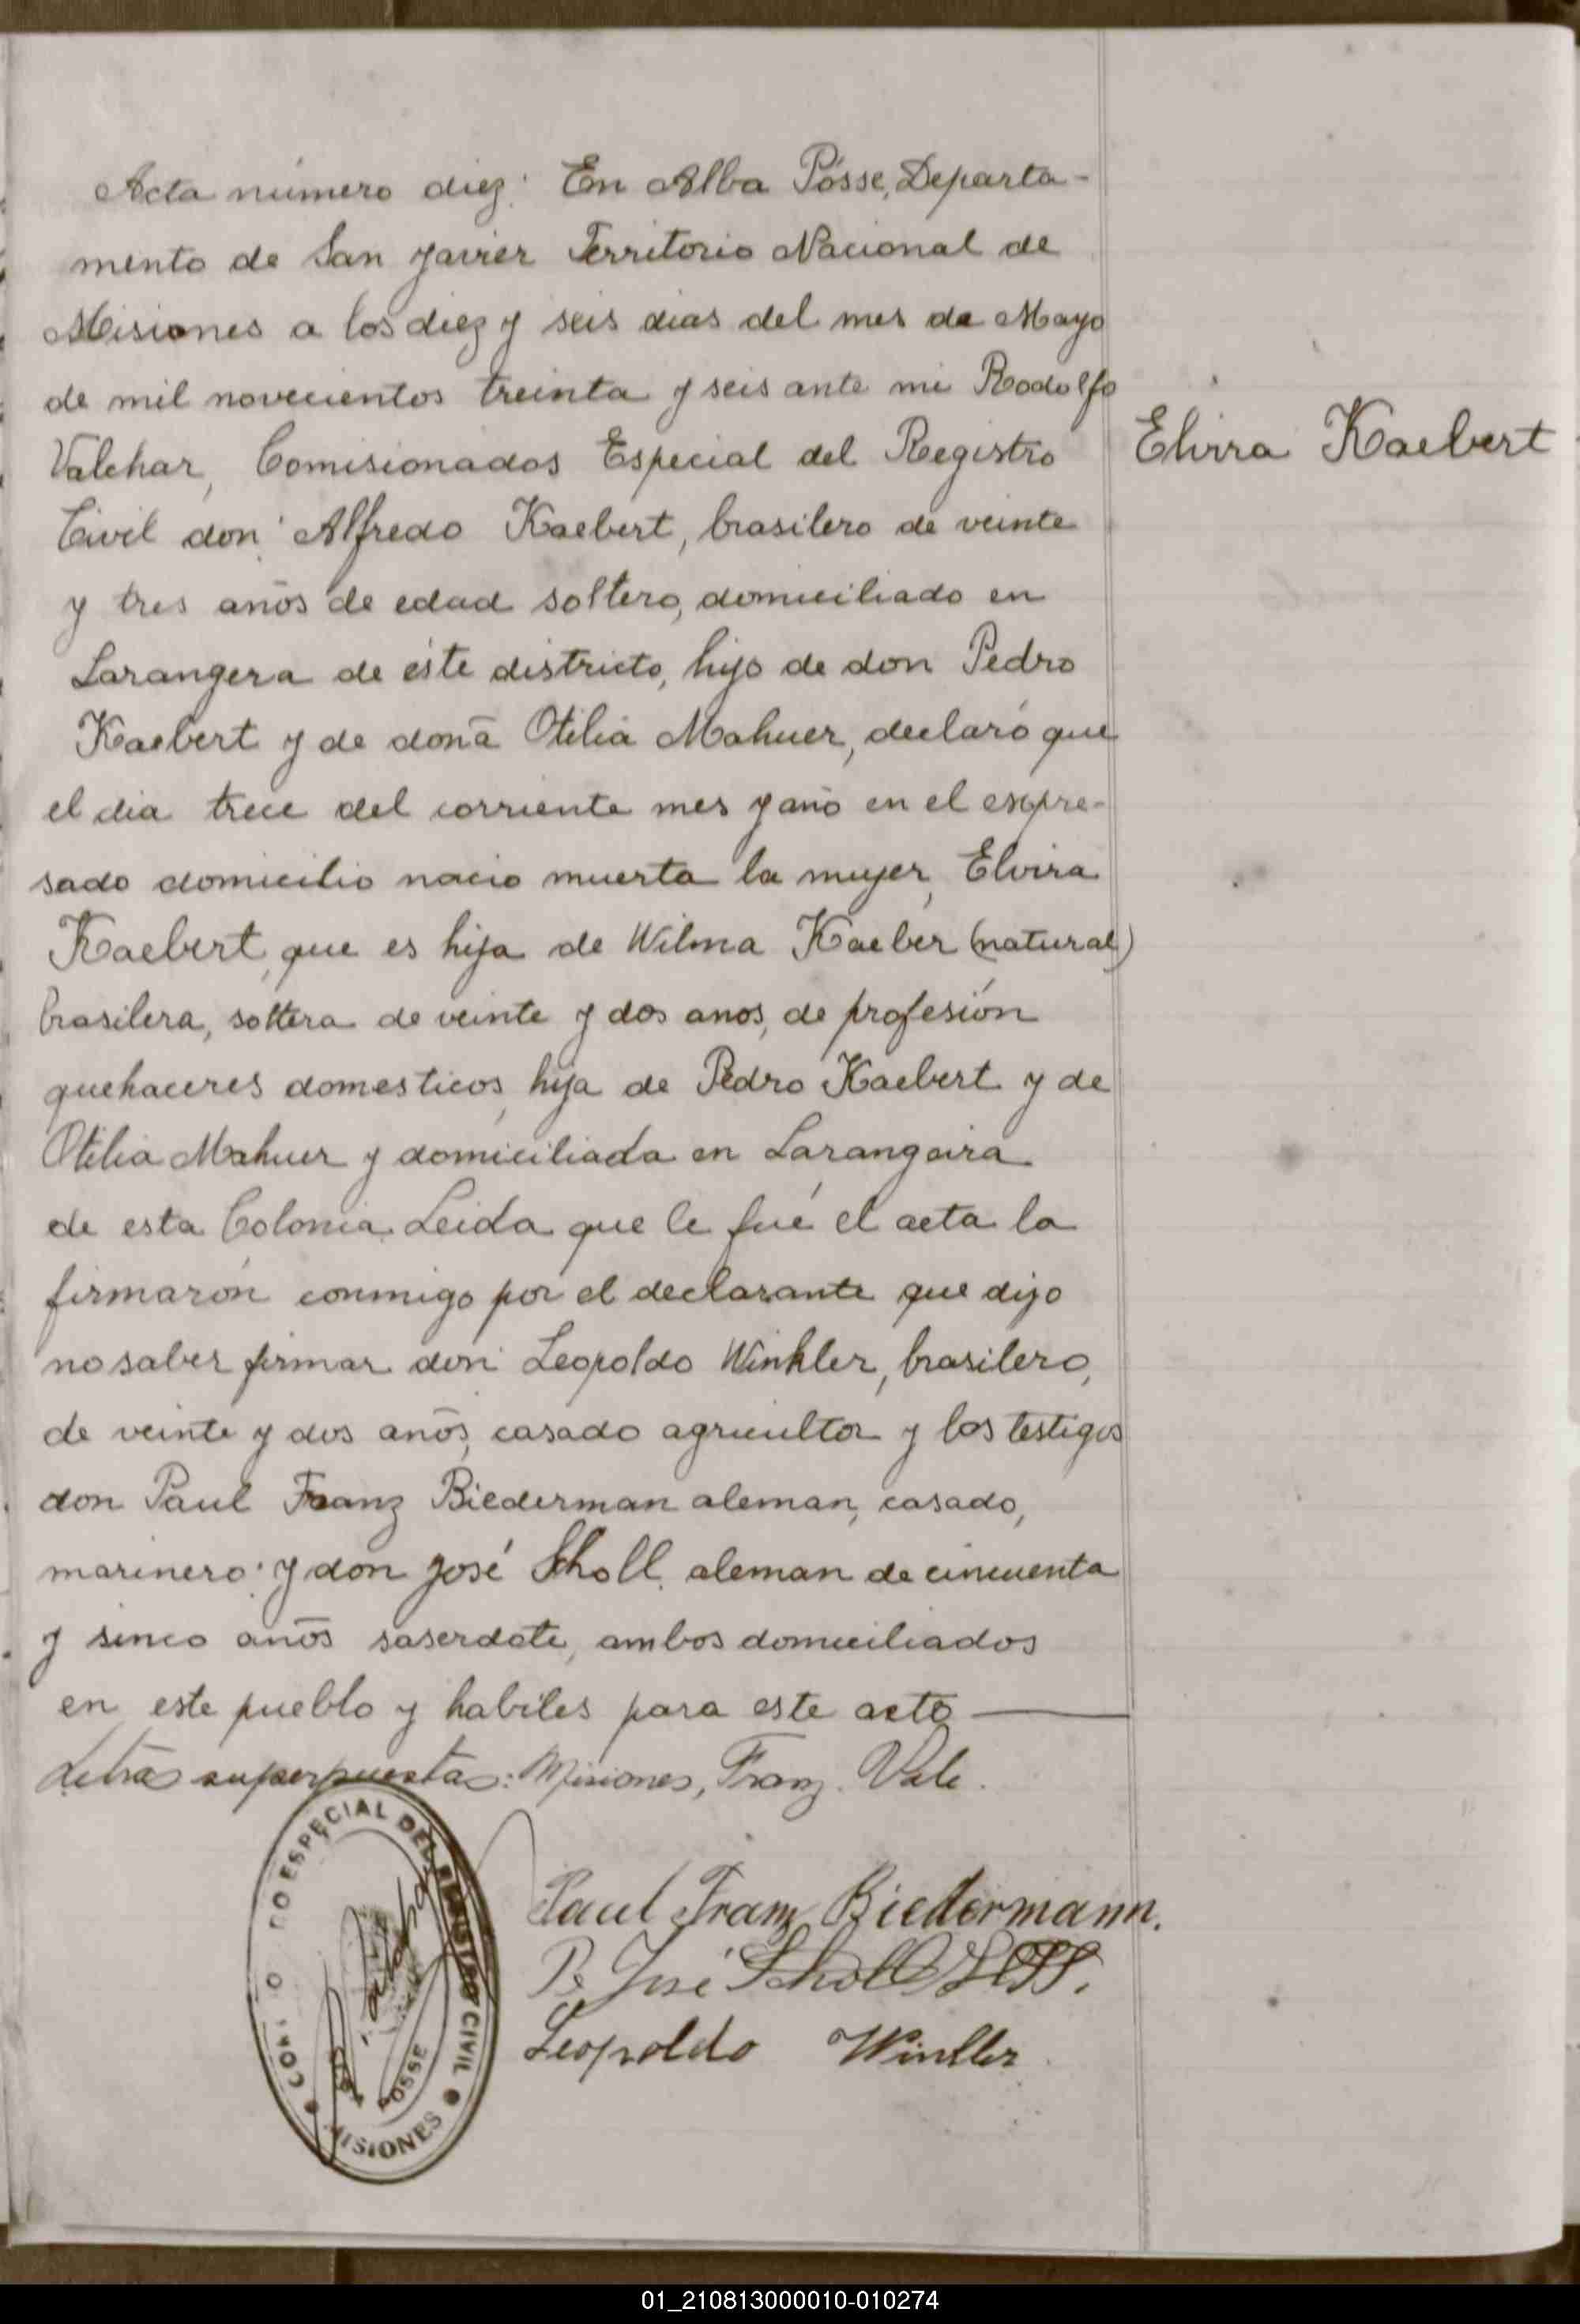 Acta número diez: En Alba Pósse, Departa-
mento de San Javier Territorio Nacional de
Misiones a los diez y seis dias del mes de Mayo
de mil novecientos treinta y seis ante mi Rodolfo
Valchar, Comisionados Especial del Registro
Elvira Kaebert
Civil don Alfredo Kaebert, brasilero de veinte
y tres años de edad soltero, domiciliado en
Larangera de éste districto, hijo de don Pedro
Kaebert y de doña Otilia Mahuer, declaró que
el dia trece del corriente mes y año en el expre-
sado domicilio nacio muerta la mujer, Elvira
Kaebert, que es hija de Wilma Kaeber (natural)
brasilera, soltera de veinte y dos anos, de profesión
quehaceres domesticos, hija de Pedro Kaebert y de
Otilia Mahuer y domiciliada en Larangeira
de esta Colonia. Leida que le fué el acta la
firmarón conmigo por el declarante que dijo
no saber firmar don Leopoldo Winkler, brasilero,
de veinte y dos años, casado agricultor y los testigos
don Paul Franz Biederman aleman, casado,
marinero y don José Scholl. aleman de cincuenta
y sinco años saserdote, ambos domiciliados
en este pueblo y habiles para este acto
Letras superpuestas: Misiones, Franz. Vale.
Paul Franz Biedermann.
P. José Scholl
Leopoldo Winkler
DO ESPECIAL DEL REGISTRO CIVIL
POSSE
MISIONES
01_210813000010-010274